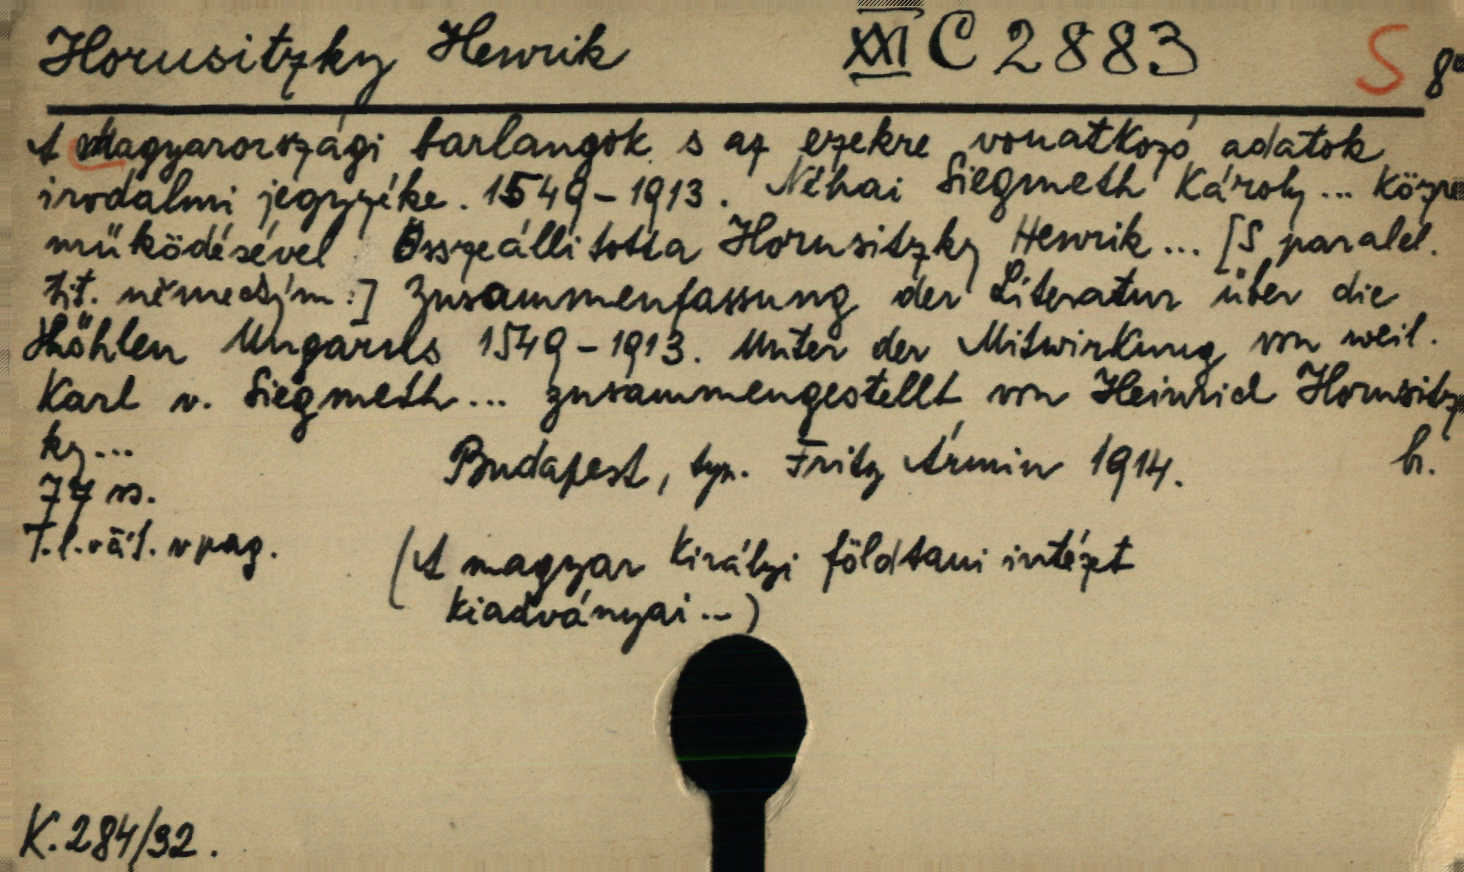 Horusitzky Henrik XXI C 2883 S 8°
A Magyarországi barlangok s az ezekre vonatkozó adatok
irodalmi jegyzéke. 1549-1913. Néhai Siegmeth Károly... közre
működésével Összeállította Horusitzky Henrik... [S paralel.
tit. německým:] Zusammenfassung der Literatur über die
Höhlen Ungarns 1549-1913. Unter der Mitwirkung von weil.
Karl v. Siegmeth... zusammengestellt von Heinrich Horusitz
ky...
Budapest, typ. Fritz Ármin 1914. b.
77 ss.
T.l. vpag.
(A magyar királyi földtani intézet
kiadványai...)
K.284/32.